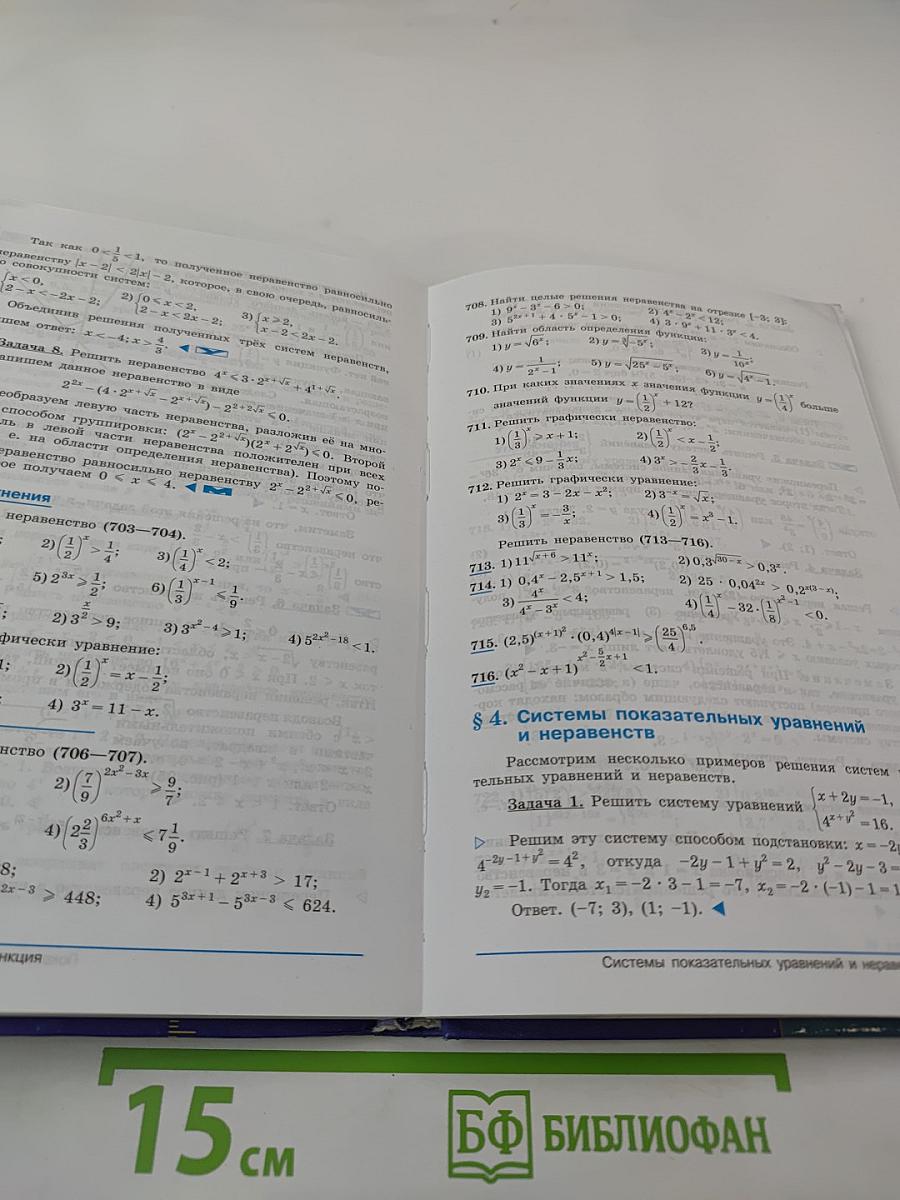 Так как 0 < 1/5 < 1, то полученное неравенство равносильно
неравенству |x − 2| < 2|x| − 2, которое, в свою очередь, равносиль-
о совокупности систем:
{x < 0, 2 − x < −2x − 2; 2) {0 ⩽ x < 2, 2 − x < 2x − 2; 3) {x ⩾ 2, x − 2 < 2x − 2.
Объединив решения полученных трёх систем неравенств,
шем ответ: x < −4; x > 4/3.
Задача 8. Решить неравенство 4ˣ ⩽ 3 · 2^(x+√x) + 4^(1+√x).
апишем данное неравенство в виде
2^(2x) − (4 · 2^(x+√x) − 2^(x+√x)) − 2^(2+2√x) ⩽ 0.
еобразуем левую часть неравенства, разложив её на мно-
способом группировки: (2ˣ − 2^(2+√x))(2ˣ + 2^(√x)) ⩽ 0. Второй
ль в левой части неравенства положителен при всех
е. на области определения неравенства). Поэтому по-
еравенство равносильно неравенству 2ˣ − 2^(2+√x) ⩽ 0, ре-
рое получаем 0 ⩽ x ⩽ 4.
нения
неравенство (703—704).
; 2) (1/2)ˣ > 1/4; 3) (1/4)ˣ < 2;
5) 2^(3x) ⩾ 1/2; 6) (1/3)^(x−1) ⩽ 1/9.
; 2) 3^(x/2) > 9; 3) 3^(x²−4) ⩾ 1; 4) 5^(2x²−18) < 1.
фически уравнение:
1; 2) (1/2)ˣ = x − 1/2;
4) 3ˣ = 11 − x.
нство (706—707).
2) (7/9)^(2x²−3x) ⩾ 9/7;
4) (2 2/3)^(6x²+x) ⩽ 7 1/9.
8; 2) 2^(x−1) + 2^(x+3) > 17;
2x−3 ⩾ 448; 4) 5^(3x+1) − 5^(3x−3) ⩽ 624.
нкция
708. Найти целые решения неравенства на отрезке [−3; 3]:
1) 9ˣ − 3ˣ − 6 > 0; 2) 4ˣ − 2ˣ < 12;
3) 5^(2x+1) + 4 · 5ˣ − 1 > 0; 4) 3 · 9ˣ + 11 · 3ˣ < 4.
709. Найти область определения функции:
1) y = √6ˣ; 2) y = ∛−5ˣ; 3) y = 1/10^(x²);
4) y = 1/(2ˣ − 1); 5) y = √(25ˣ − 5ˣ); 6) y = √(4ˣ − 1).
710. При каких значениях x значения функции y = (1/4)ˣ больше
значений функции y = (1/2)ˣ + 12?
711. Решить графически неравенство:
1) (1/3)ˣ ⩾ x + 1; 2) (1/2)ˣ < x − 1/2;
3) 2ˣ ⩽ 9 − 1/3 x; 4) 3ˣ > −2/3 x − 1/3.
712. Решить графически уравнение:
1) 2ˣ = 3 − 2x − x²; 2) 3⁻ˣ = √x;
3) (1/3)ˣ = −3/x; 4) (1/2)ˣ = x³ − 1.
Решить неравенство (713—716).
713. 1) 11^(√(x+6)) > 11ˣ; 2) 0,3^(√(30−x)) > 0,3ˣ.
714. 1) 0,4ˣ − 2,5^(x+1) > 1,5; 2) 25 · 0,04^(2x) > 0,2^(x(3−x));
3) 4ˣ/(4ˣ − 3ˣ) < 4; 4) (1/4)ˣ − 32 · (1/8)^(x²−1) < 0.
715. (2,5)^((x+1)²) · (0,4)^(4|x−1|) ⩾ (25/4)^(6,5).
716. (x² − x + 1)^(x² − 5/2 x + 1) < 1.
§ 4. Системы показательных уравнений
и неравенств
Рассмотрим несколько примеров решения систем
тельных уравнений и неравенств.
Задача 1. Решить систему уравнений {x + 2y = −1, 4^(x+y²) = 16.
▷ Решим эту систему способом подстановки: x = −2y
4^(−2y−1+y²) = 4², откуда −2y − 1 + y² = 2, y² − 2y − 3 =
y₂ = −1. Тогда x₁ = −2 · 3 − 1 = −7, x₂ = −2 · (−1) − 1 = 1
Ответ. (−7; 3), (1; −1). ◀
Системы показательных уравнений и нерав
15 см
БФ БИБЛИОФАН